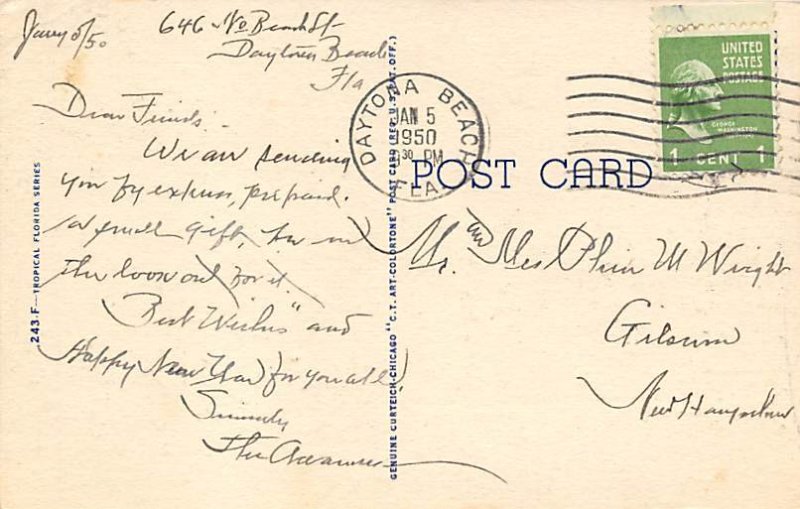 Jany 5/50
646 No Beach St
Daytona Beach
Fla
Dear Friends.
We are sending
you by express, prepaid.
a small gift, so
the look out for it
"Best Wishes" and
Happy New Year for you all!
Sincerely
The
243-F—TROPICAL FLORIDA SERIES
GENUINE CURTEICH-CHICAGO "C.T. ART-COLORTONE" POST CARD (REG. U.S. PAT. OFF.)
DAYTONA BEACH
JAN 5
1950
30 PM
FLA.
UNITED
STATES
POSTAGE
GEORGE
WASHINGTON
1 CENT 1
POST CARD
Mr. and Mrs M Wright
Gilsum
New Hampshire